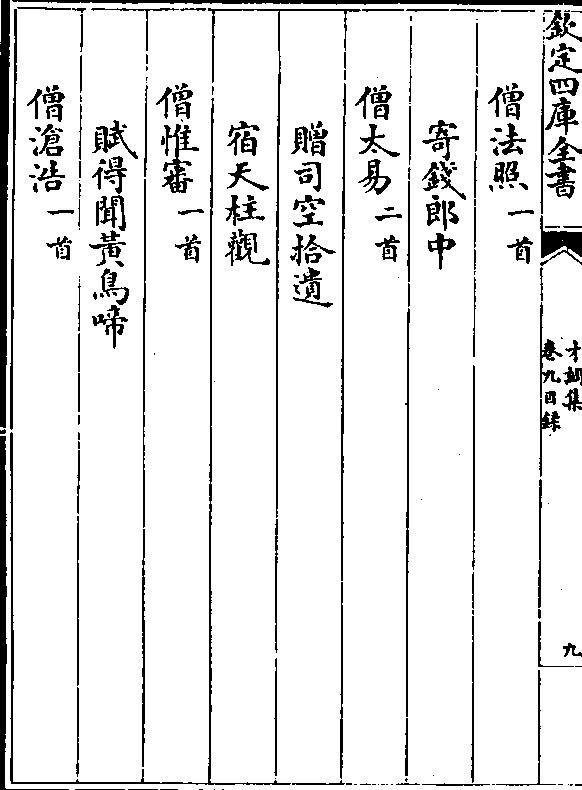 欽定四庫全書
才調集
卷九目錄
九
僧法照一首
寄錢郎中
僧太易二首
贈司空拾遺
宿天柱觀
僧惟審一首
賦得聞黃鳥啼
僧滄浩一首